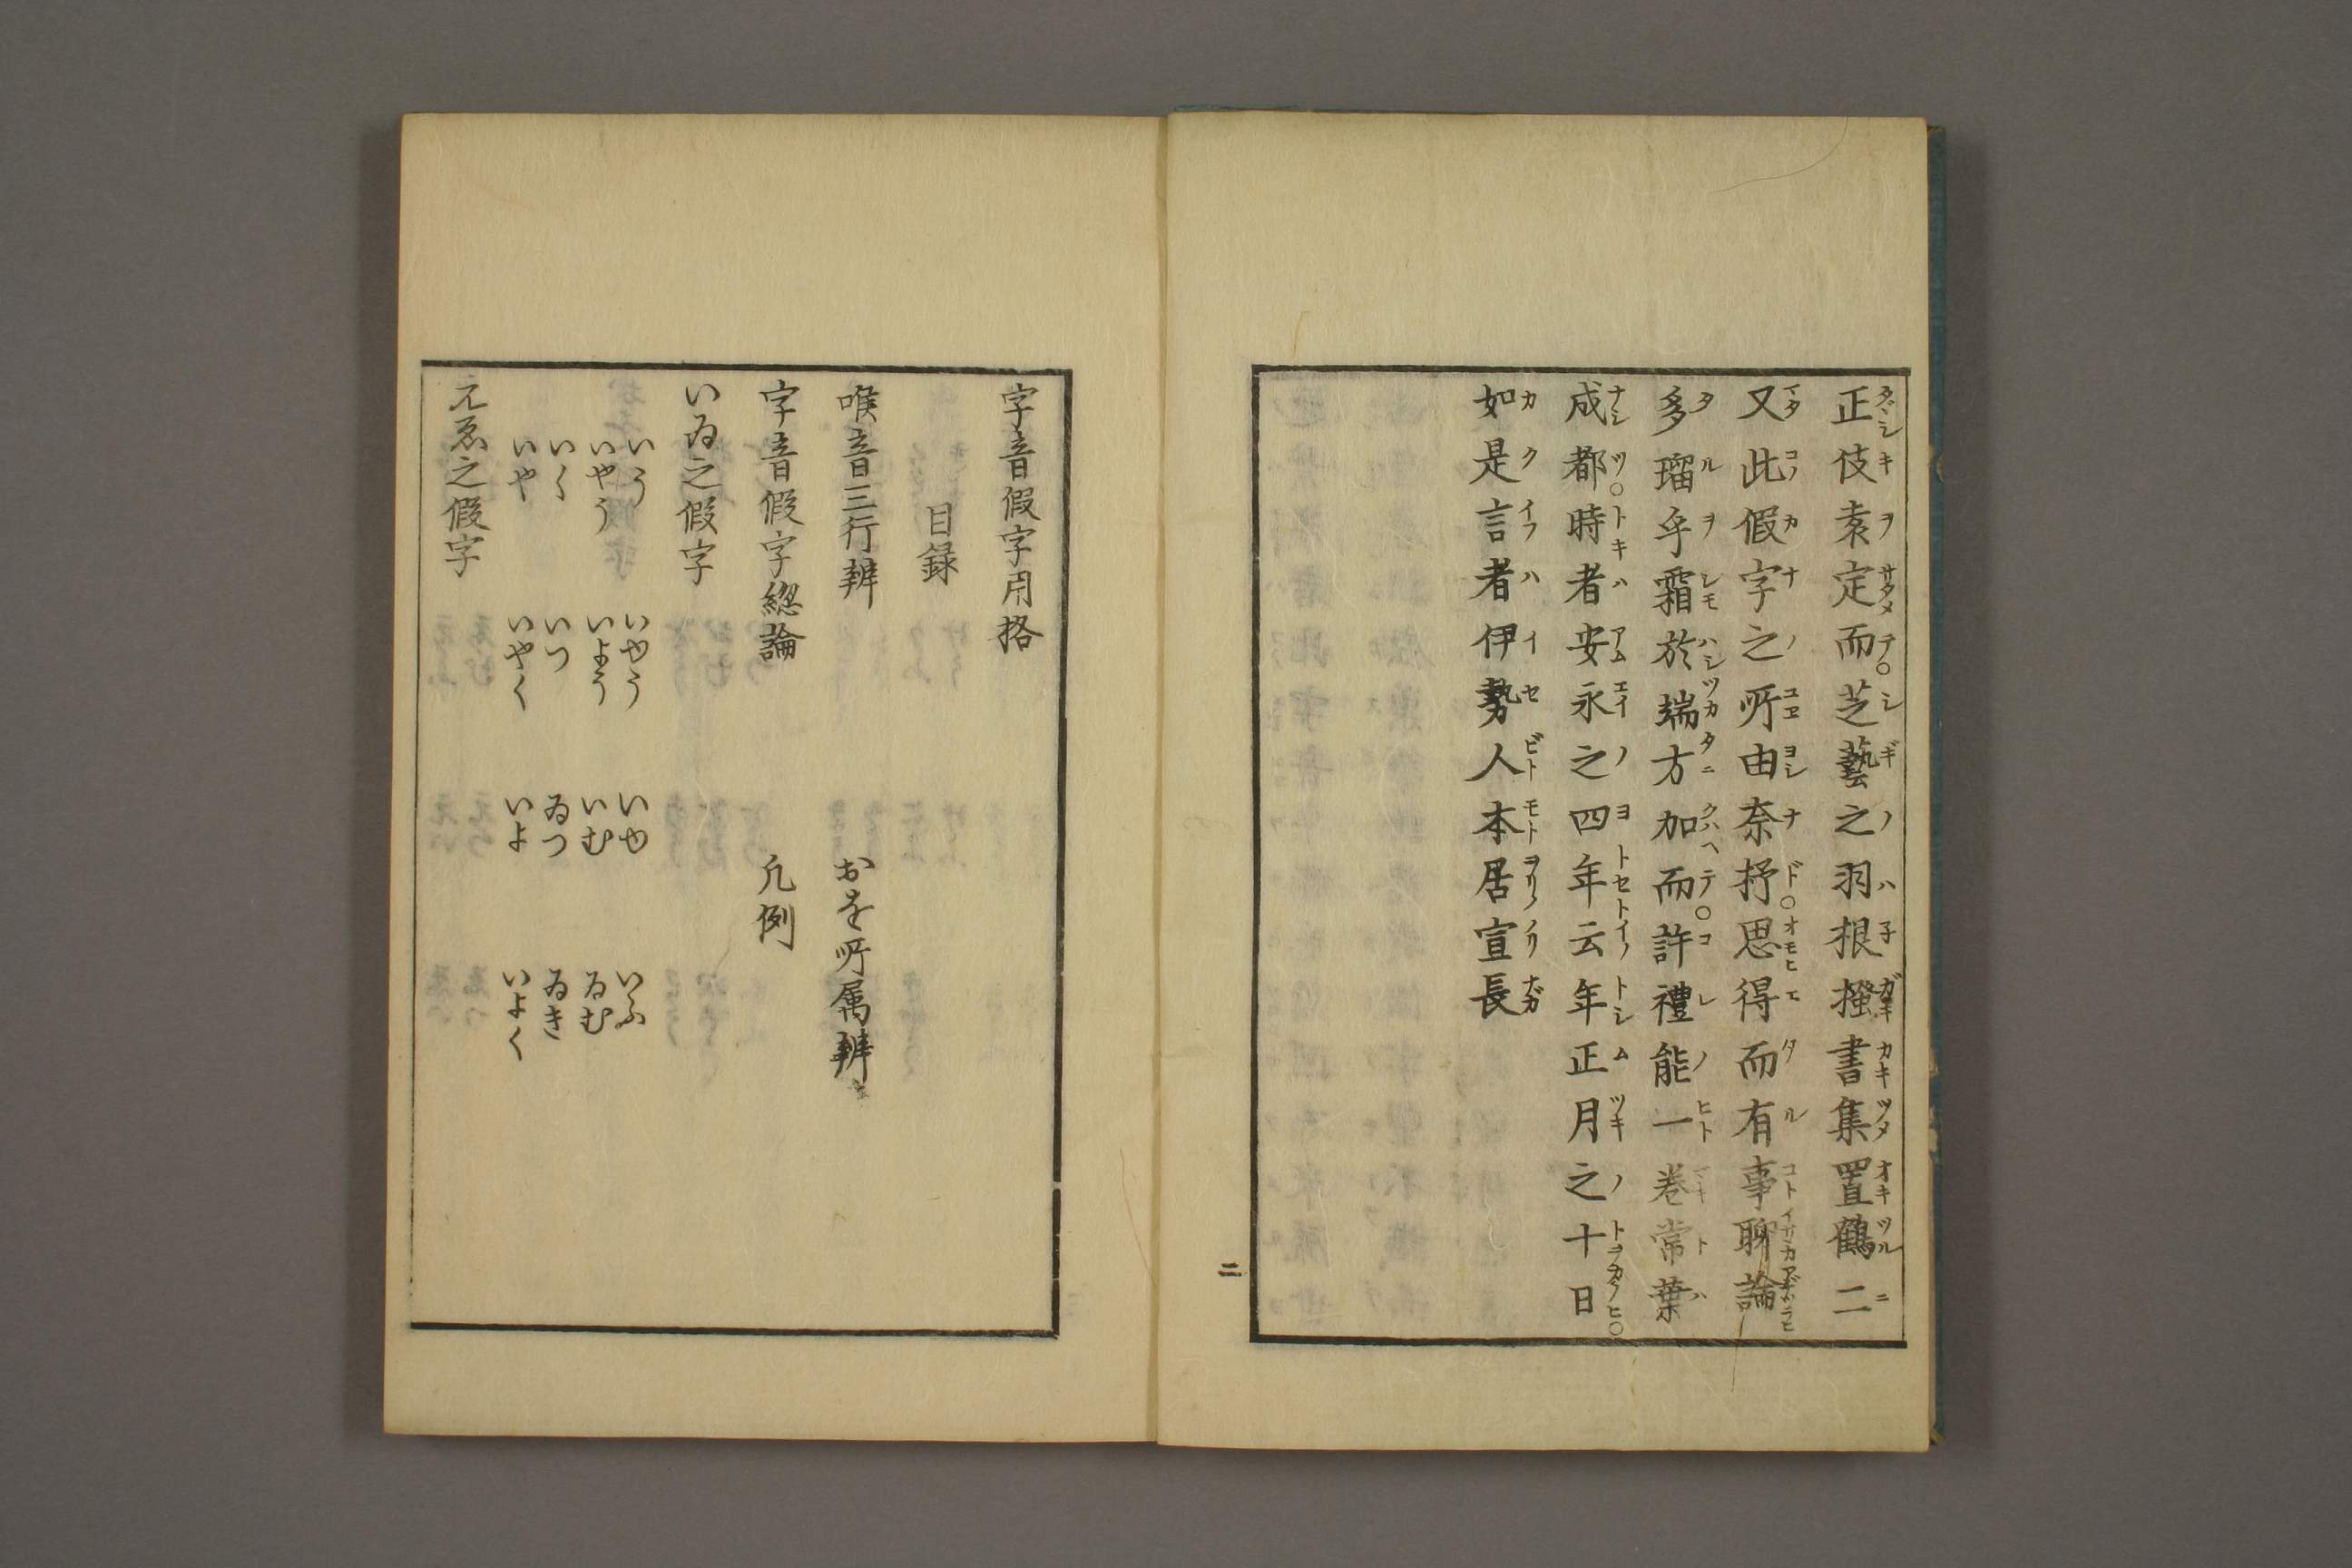 正伎袁定而芝藝之羽根掻書集置鶴二
又此假字之所由奈抒思得而有事聊論
多瑠乎霜於端方加而許禮能一巻常葉
成都時者安永之四年云年正月之十日
如是言者伊勢人本居宣長
二
字音假字用格
目録
喉音三行辨 おを所属辨
字音假字総論 凡例
いゐ之假字
いう いゆう いゆ いふ
いやう いよう いむ ゐむ
いく いつ ゐつ ゐき
いや いやく いよ いよく
えゑ之假字